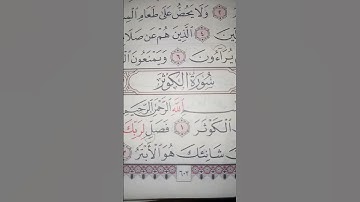 ٣ وَلَا يَحُضُّ عَلَىٰ طَعَامِ
٤ الَّذِينَ هُمْ عَن
يُرَآءُونَ ٦ وَيَمْنَعُونَ
سُورَةُ الْكَوْثَرِ
اللَّهِ الرَّحْمَٰنِ الرَّحِيمِ
الْكَوْثَرَ ١ فَصَلِّ لِرَبِّكَ
شَانِئَكَ هُوَ الْأَبْتَرُ ٣
٦٠٢